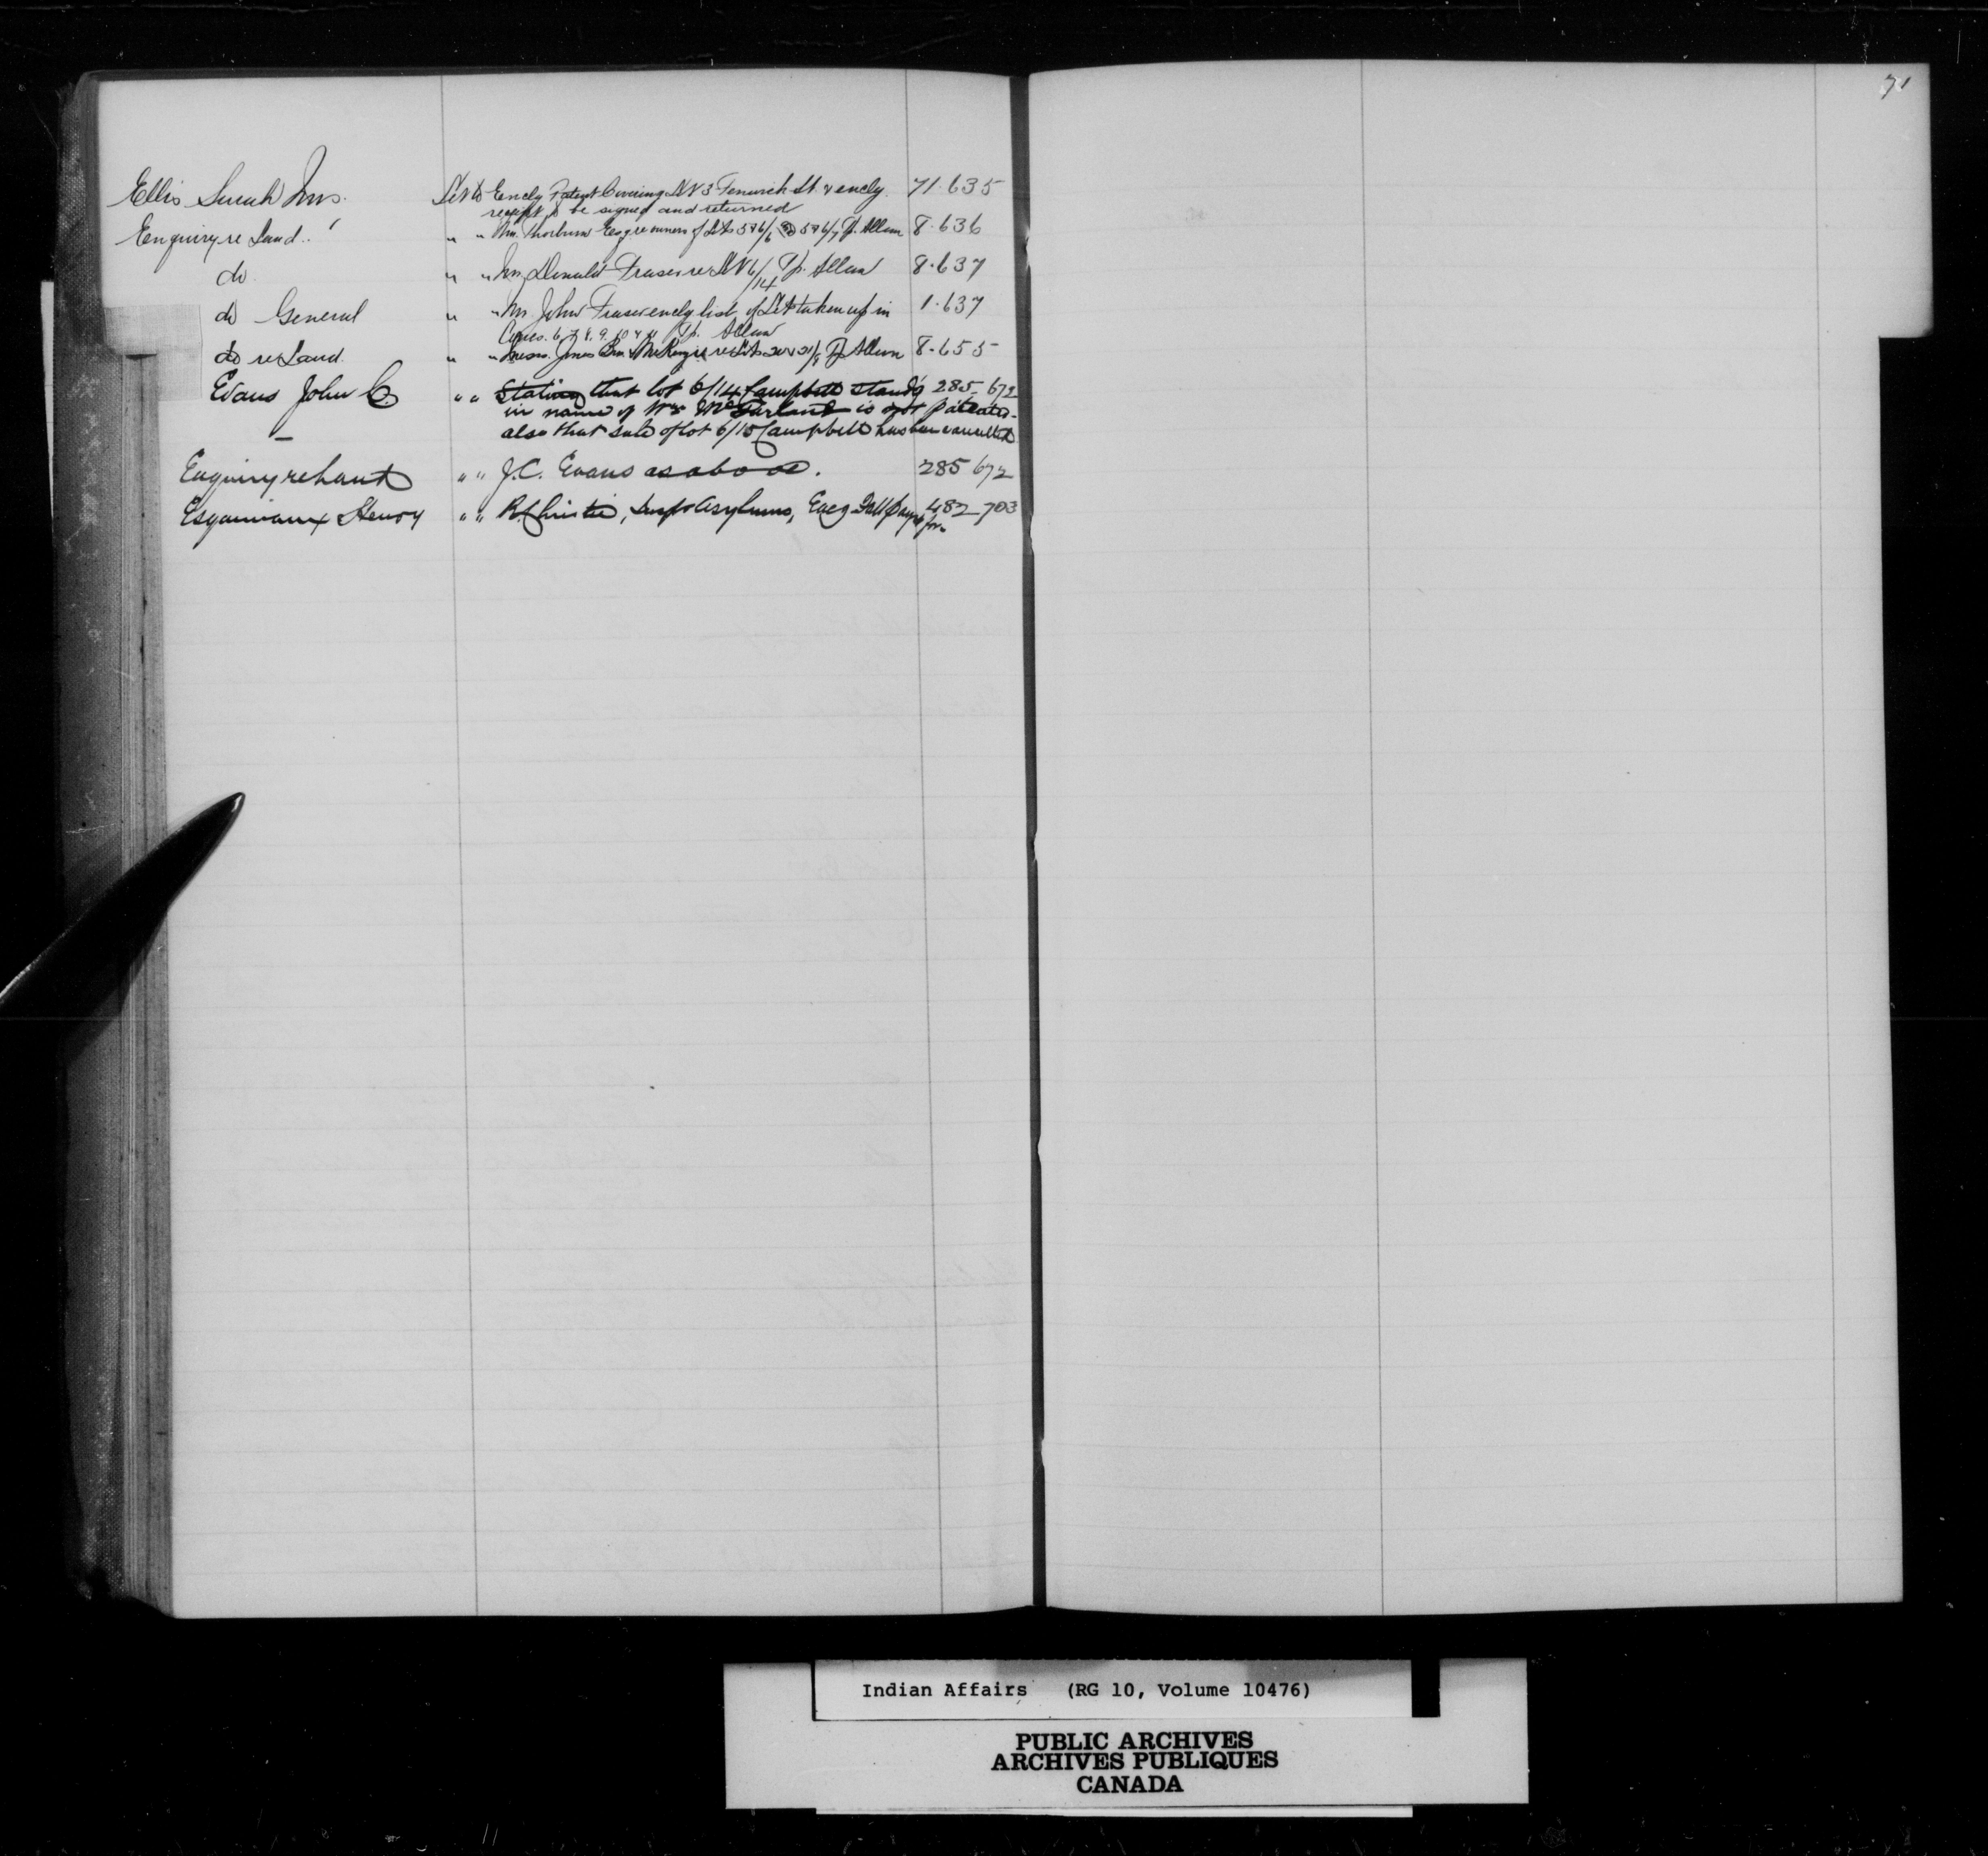 71
Ellis Sarah Mrs. Let to Encly Patent Covering No 3 Fenwick St. & encly. 71.635
receipt to be signed and returned
Enquiry re Land.. " " Wm. Thorburn Esq re owners of Lots 5 & 6/6 5 & 6/7 Tp. Allan 8.636
do " " Mr. Donald Fraser re No 6/14 Tp. Allan 8.637
do General " " Mr John Fraser encly list of Lots taken up in 1.637
Cones. 6 7 8. 9. 10 & 11 Tp. Allan
do re Land. " " Messrs. Jones Bros & McKenzie re Lots 20 & 21/8 Tp Allan 8.655
Evans John C. " " Stating that lot 6/14 Campbell stand'g 285-672
in name of Wm McFarland is not patented-
also that sale of lot 6/15 Campbell has been cancelled
Enquiry re " " J.C. Evans as above. 285 672
Henry " " R. Christie, Insptr Asylums, Encg paymt for. 482-703
Indian Affairs (RG 10, Volume 10476)
PUBLIC ARCHIVES
ARCHIVES PUBLIQUES
CANADA